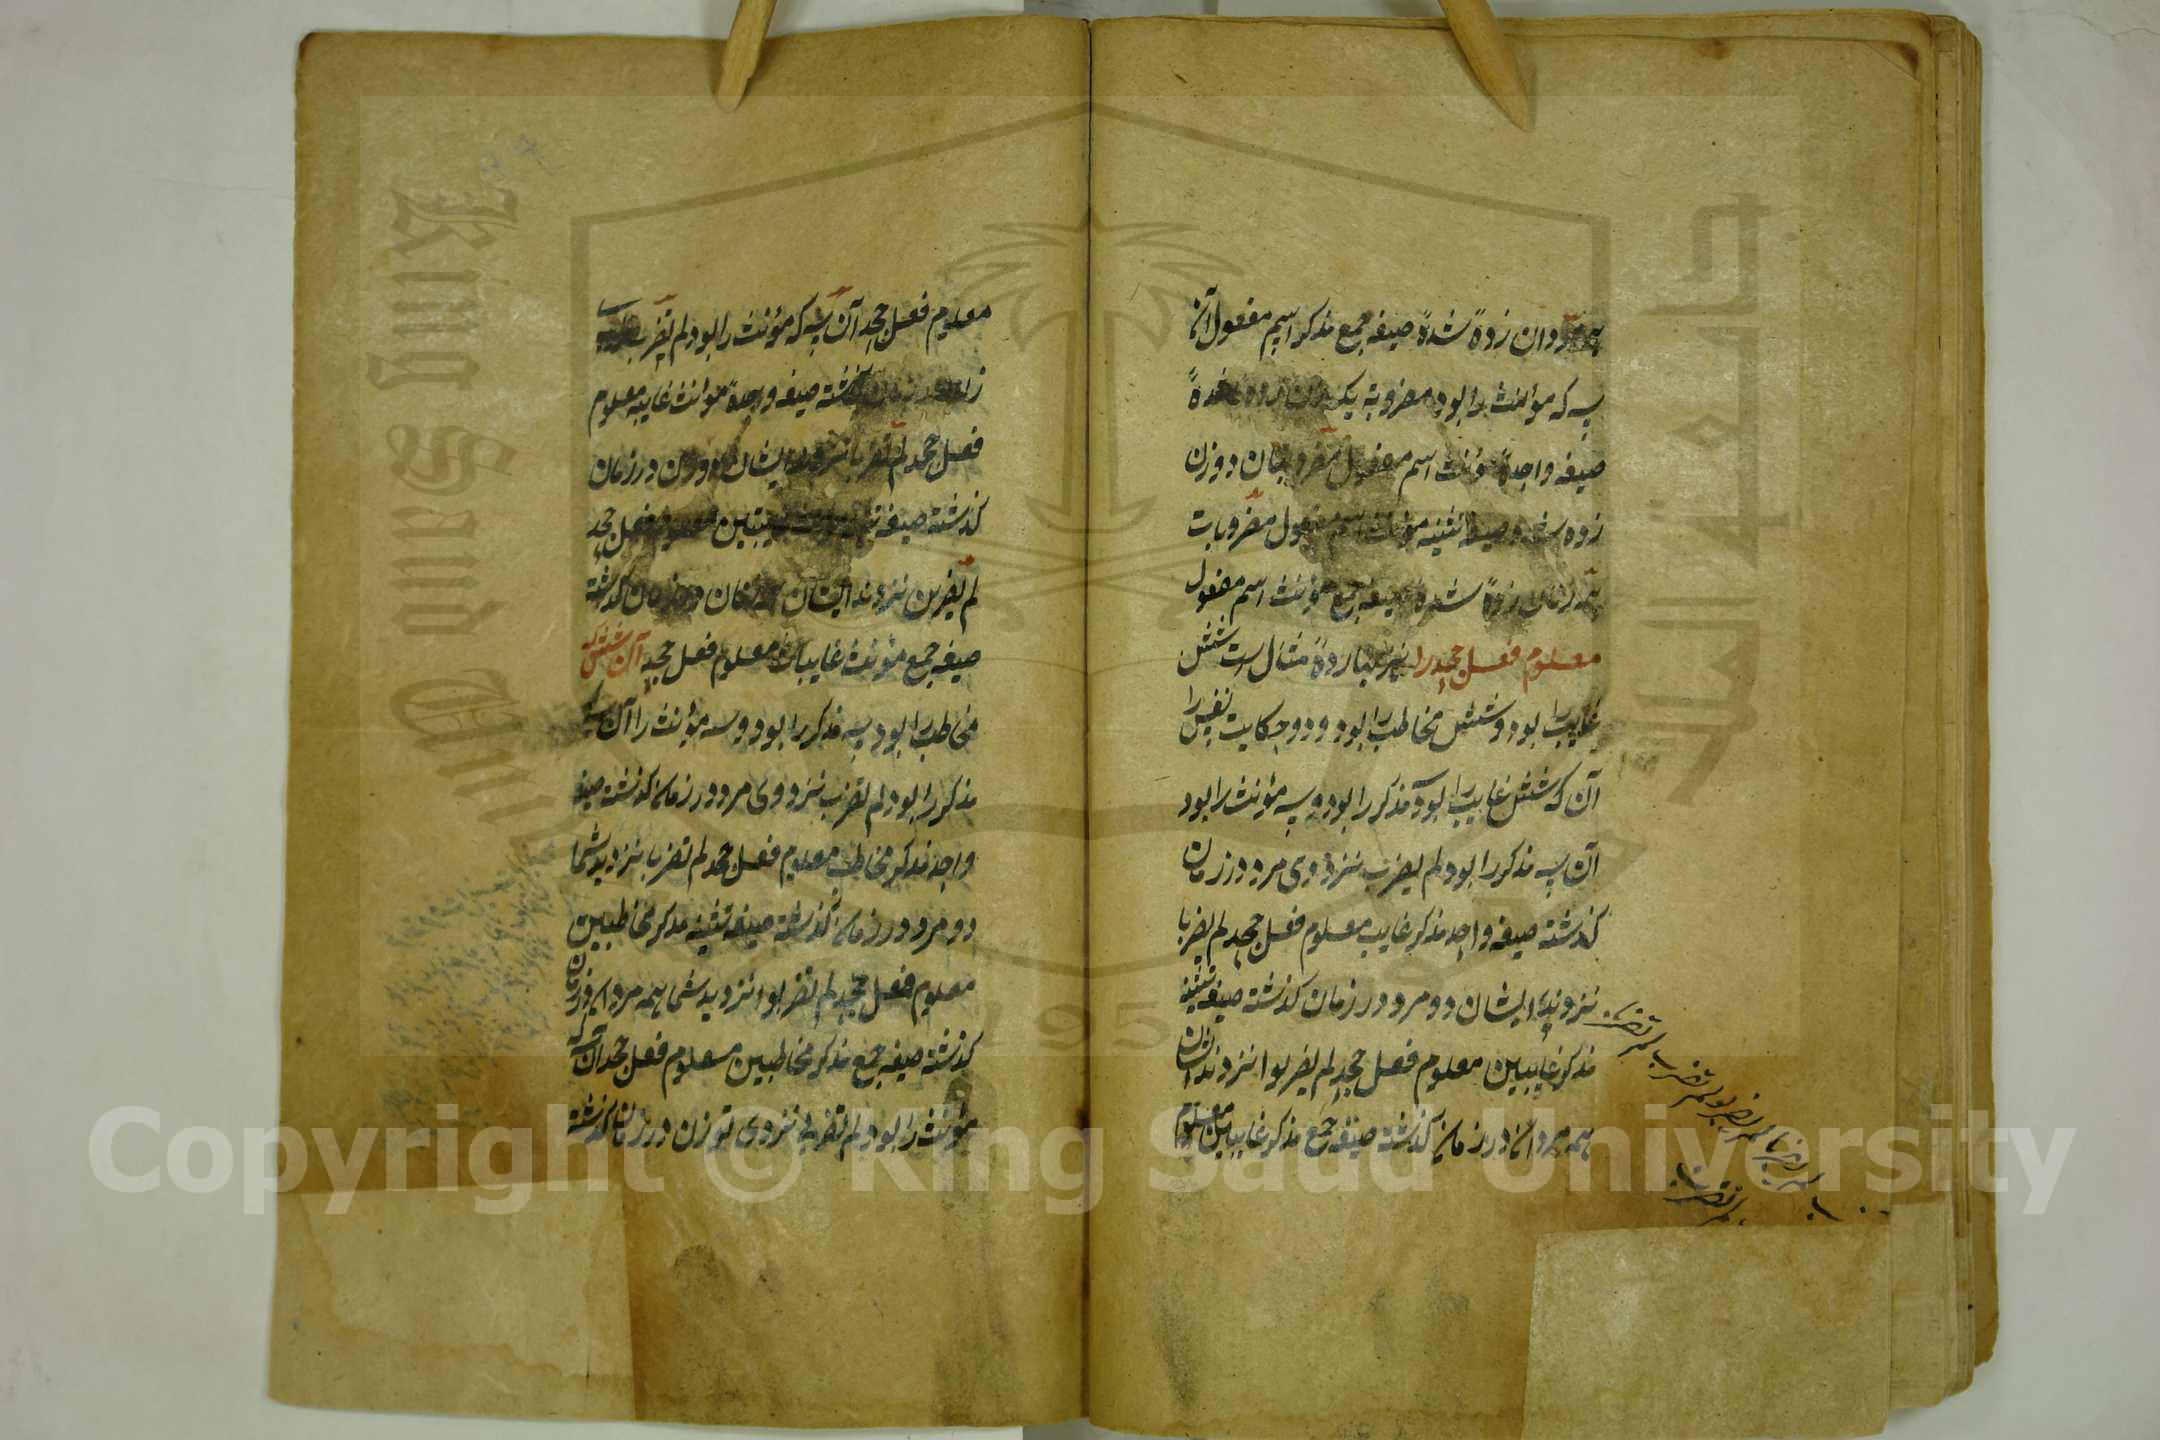 همه مردان زدهٔ شدهٔ صیغه جمع مذکر اسم مفعول آن
سه که مؤنث را بود مضروبة یک زن زدهٔ شدهٔ
صیغه واحدهٔ مؤنث اسم مفعول مضروبتان دو زن
زده شده صیغه تثنیه مؤنث اسم مفعول مضروبات
همه زنان زدهٔ شدهٔ صیغه جمع مؤنث اسم مفعول
معلوم فعل جحد را نیز چهارده مثال است شش
غایب را بود و شش مخاطب را بود و دو حکایت نفس را
آن که شش غایب را بود سه مذکر را بود و سه مؤنث را بود
آن سه مذکر را بود لم یضرب نزد وی مرد در زمان
گذشته صیغه واحد مذکر غایب معلوم فعل جحد لم یضربا
نزدند ایشان دو مرد در زمان گذشته صیغه تثنیه
مذکر غایبین معلوم فعل جحد لم یضربوا نزدند ایشان
همه مردان در زمان گذشته صیغه جمع مذکر غایبین معلوم
لم تضرب
معلوم فعل جحد آن سه که مؤنث را بود لم تضرب
زن در زمان گذشته صیغه واحدهٔ مؤنث غایبه معلوم
فعل جحد لم تضربا نزدند ایشان دو زن در زمان
گذشته صیغه تثنیه مؤنث غایبتین معلوم فعل جحد
لم یضربن نزدند ایشان همه زنان در زمان گذشته
صیغه جمع مؤنث غایبات معلوم فعل جحد آن شش که
مخاطب را بود سه مذکر را بود و سه مؤنث را آن سه که
مذکر را بود لم تضرب نزدی مرد در زمان گذشته صیغه
واحد مذکر مخاطب معلوم فعل جحد لم تضربا نزدید شما
دو مرد در زمان گذشته صیغه تثنیه مذکر مخاطبین
معلوم فعل جحد لم تضربوا نزدید شما همه مردان در زمان
گذشته صیغه جمع مذکر مخاطبین معلوم فعل جحد آن سه که
مؤنث را بود لم تضربی نزدی تو زن در زمان گذشته
Copyright © King Saud University